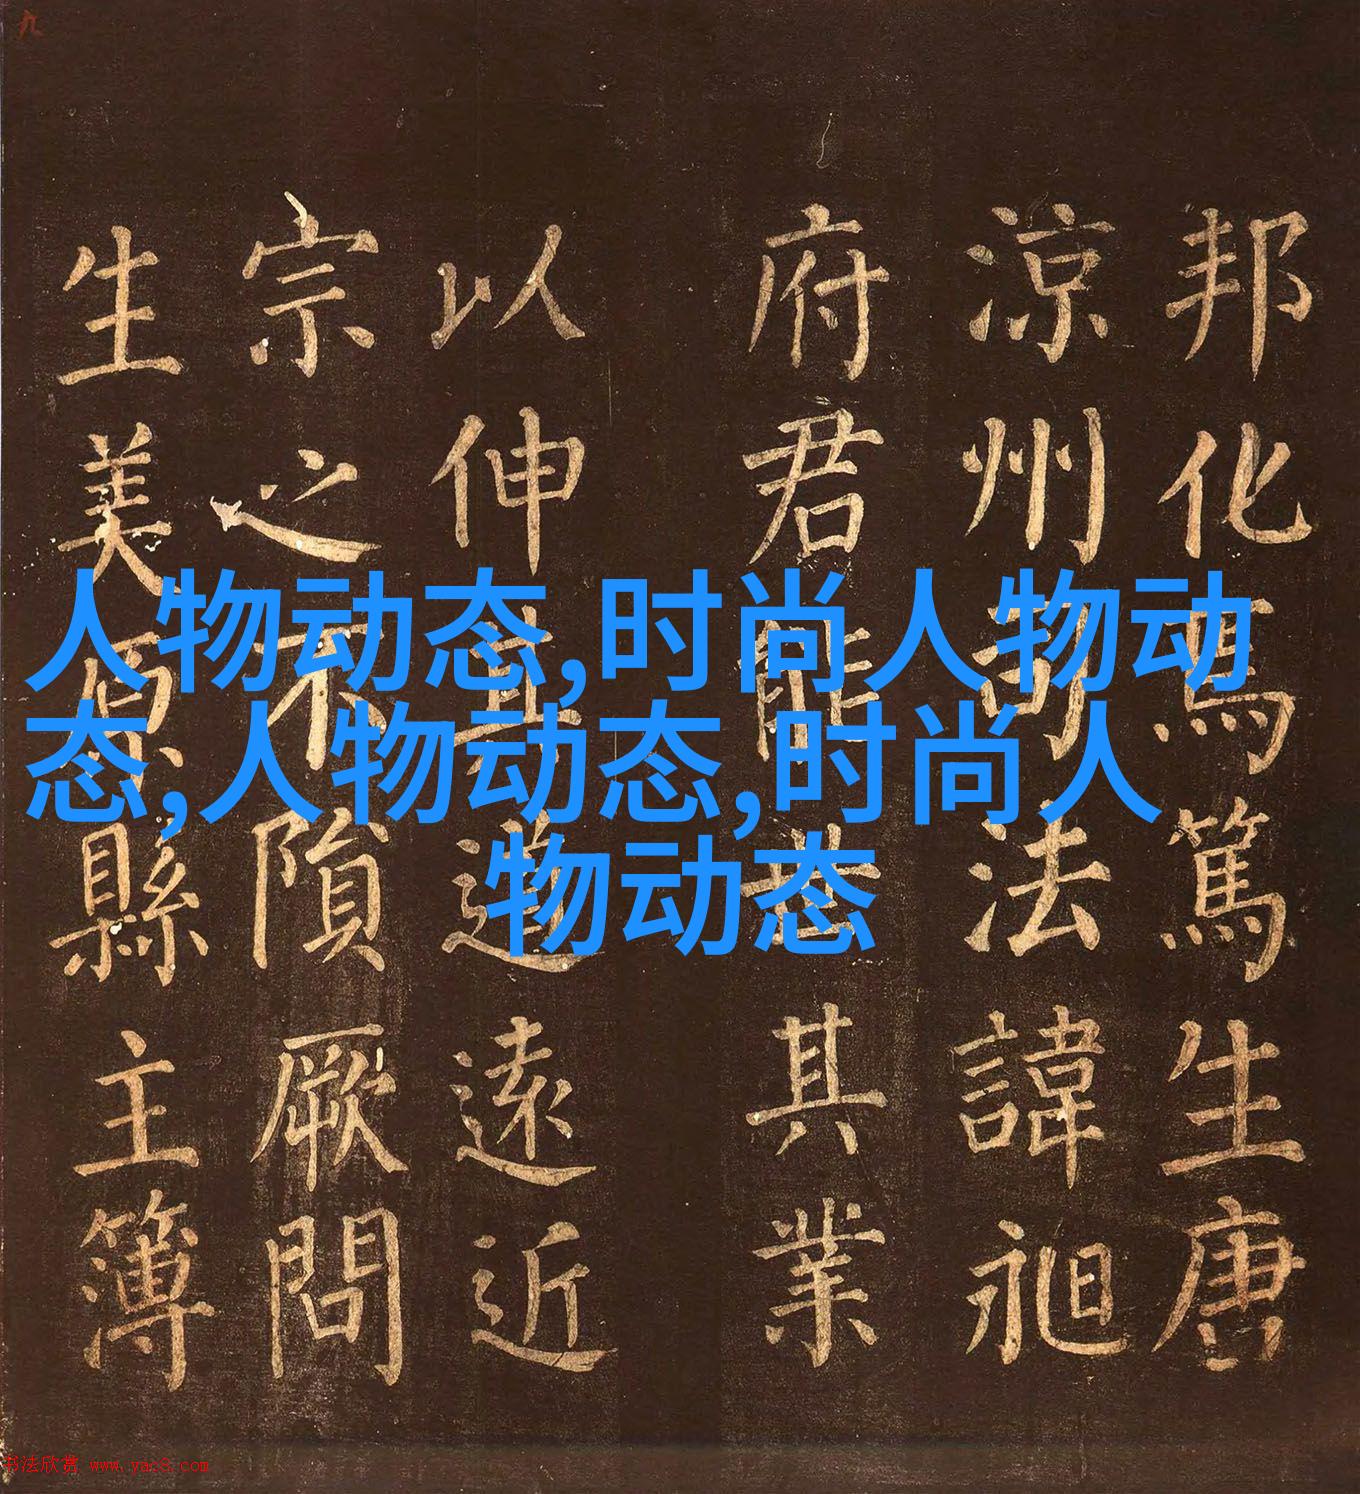 九
邦化焉篤生唐
涼州司法諱昶
府君能世其業
以伸其道遠近
宗之不隕厥問
生美原縣主簿
人物动态,时尚人物动
态,人物动态,时尚人
物动态
书法欣赏 www.yac8.com